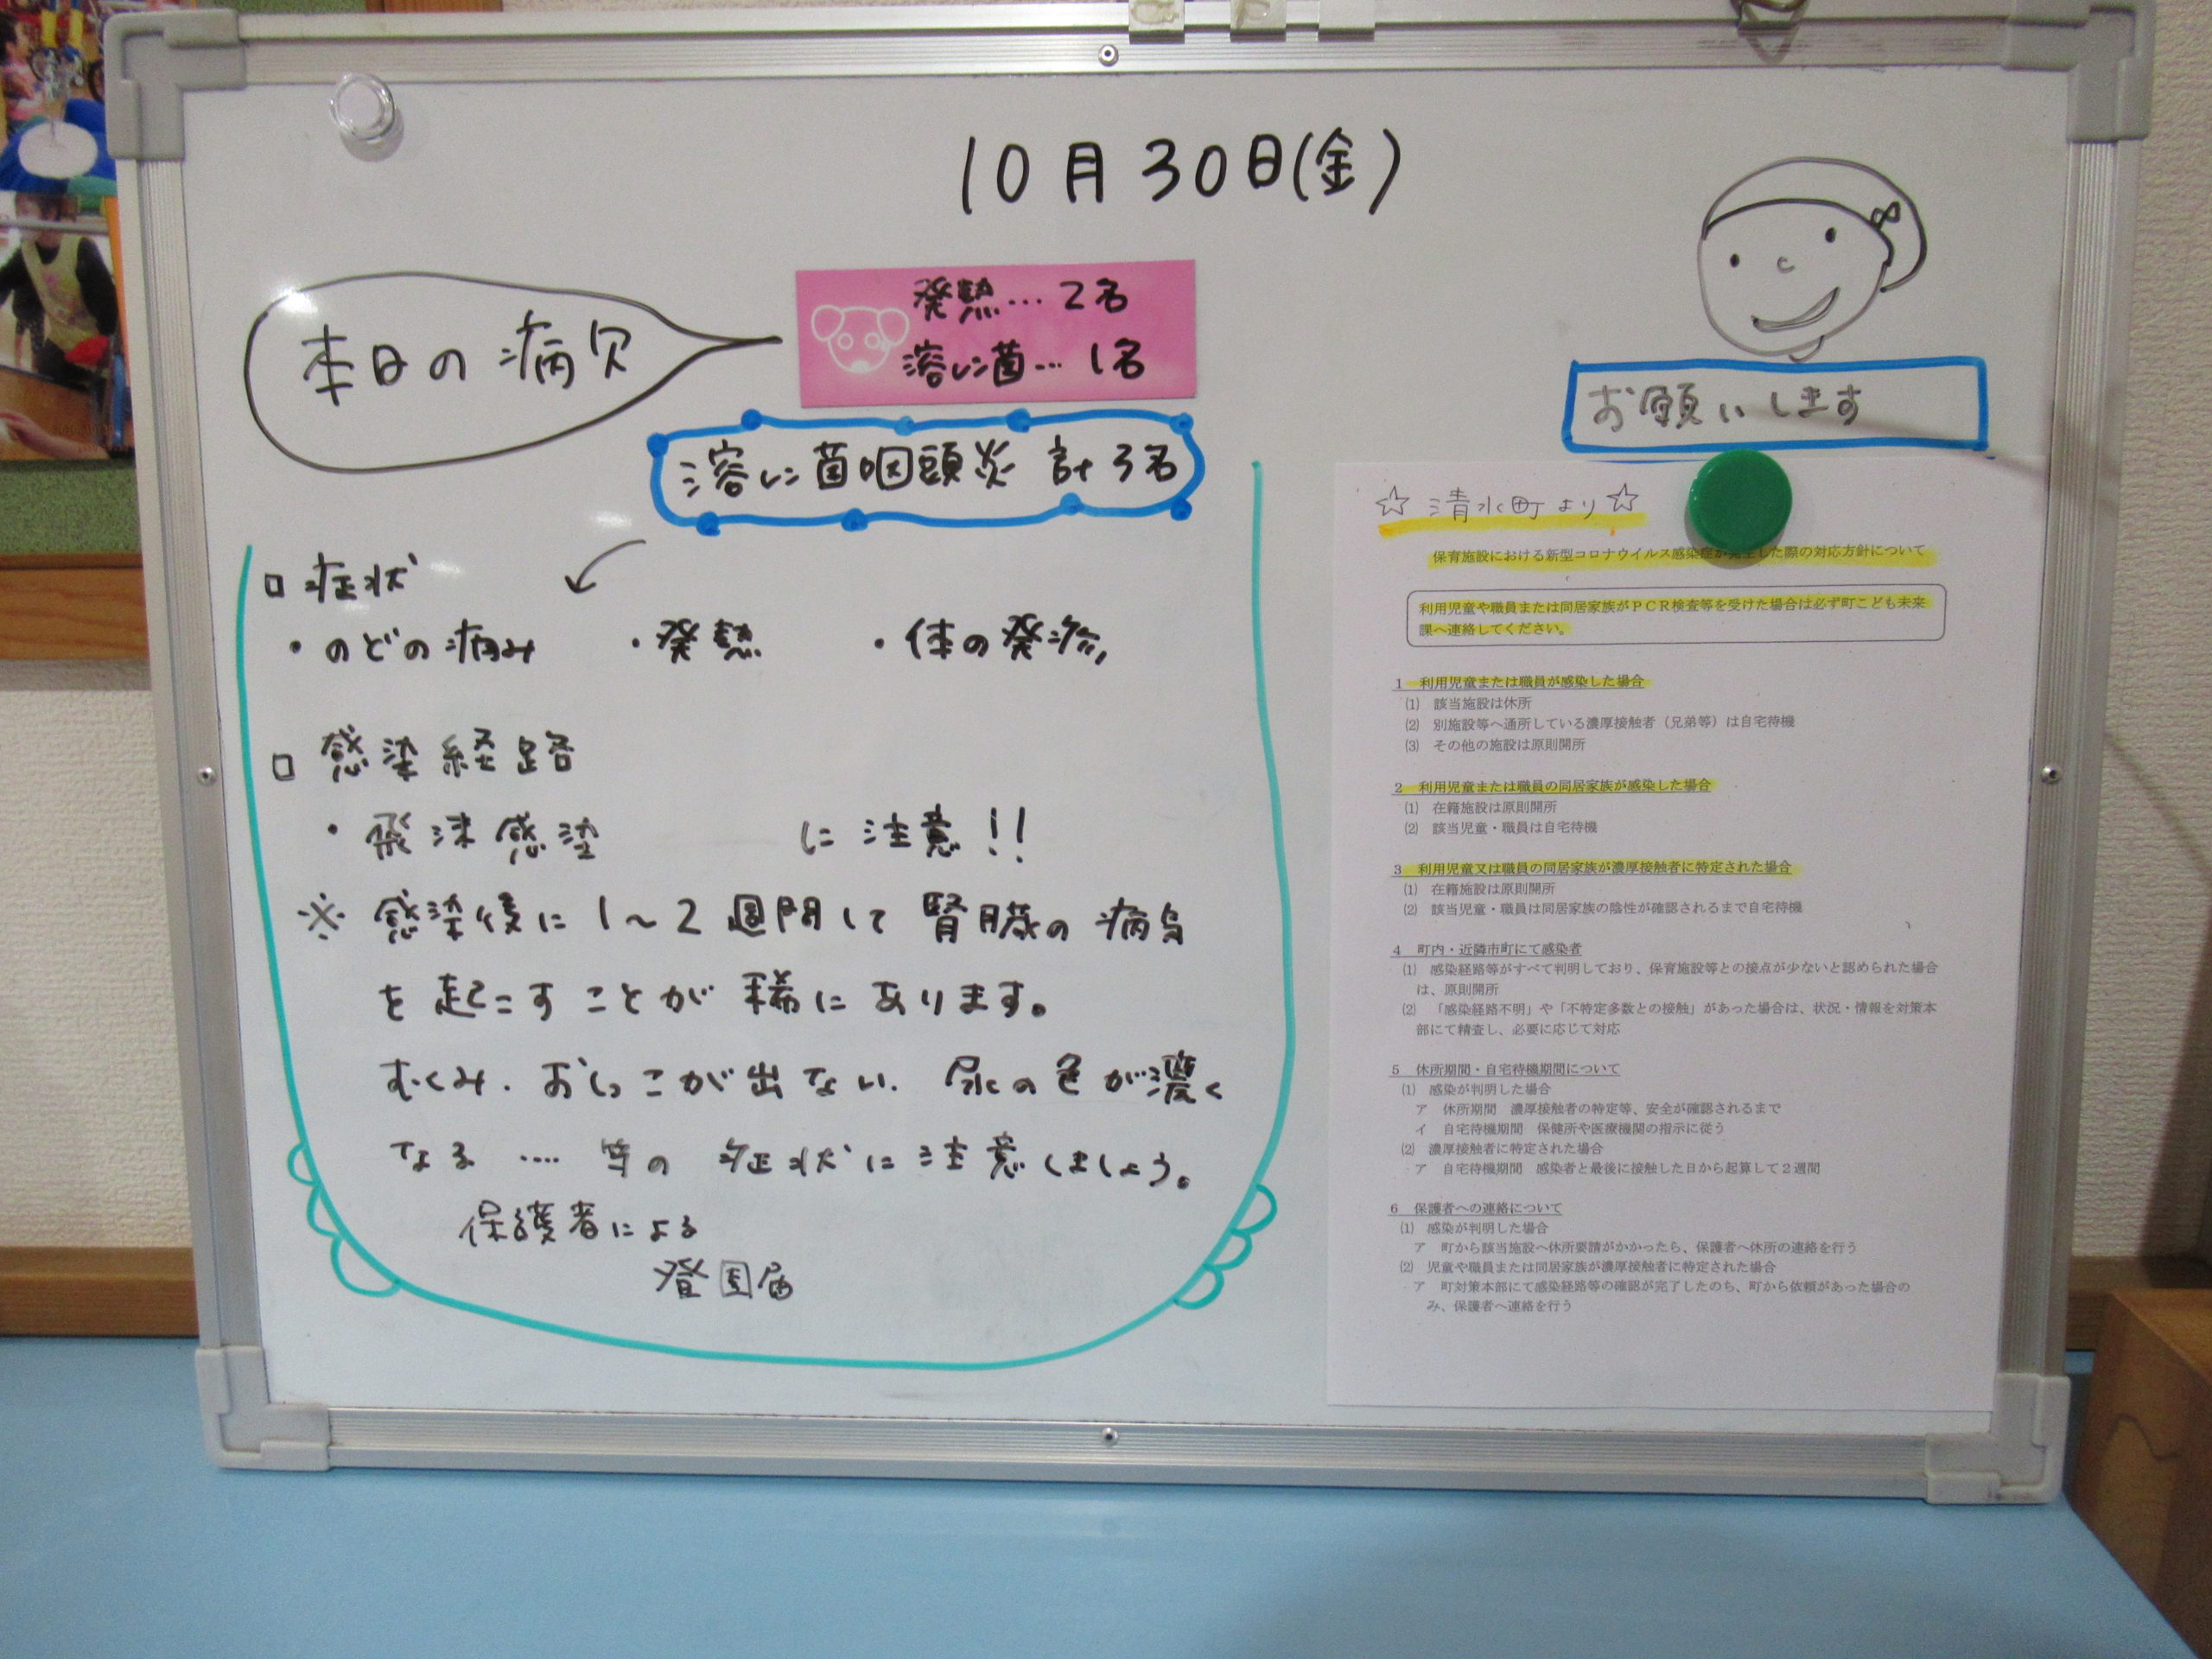 10月30日(金)
本日の病欠
発熱…2名
溶レン菌…1名
溶レン菌咽頭炎 計3名
□ 症状
・のどの痛み ・発熱 ・体の発疹
□ 感染経路
・飛沫感染 に注意!!
※ 感染後に1～2週間して腎臓の病気
を起こすことが稀にあります。
むくみ．おしっこが出ない．尿の色が濃く
なる ‥‥ 等の症状に注意しましょう。
保護者による
登園届
お願いします
☆ 清水町より ☆
保育施設における新型コロナウイルス感染症が発生した際の対応方針について
利用児童や職員または同居家族がＰＣＲ検査等を受けた場合は必ず町こども未来
課へ連絡してください。
1 利用児童または職員が感染した場合
(1) 該当施設は休所
(2) 別施設等へ通所している濃厚接触者（兄弟等）は自宅待機
(3) その他の施設は原則開所
2 利用児童または職員の同居家族が感染した場合
(1) 在籍施設は原則開所
(2) 該当児童・職員は自宅待機
3 利用児童又は職員の同居家族が濃厚接触者に特定された場合
(1) 在籍施設は原則開所
(2) 該当児童・職員は同居家族の陰性が確認されるまで自宅待機
4 町内・近隣市町にて感染者
(1) 感染経路等がすべて判明しており、保育施設等との接点が少ないと認められた場合
は、原則開所
(2) 「感染経路不明」や「不特定多数との接触」があった場合は、状況・情報を対策本
部にて精査し、必要に応じて対応
5 休所期間・自宅待機期間について
(1) 感染が判明した場合
ア 休所期間 濃厚接触者の特定等、安全が確認されるまで
イ 自宅待機期間 保健所や医療機関の指示に従う
(2) 濃厚接触者に特定された場合
ア 自宅待機期間 感染者と最後に接触した日から起算して２週間
6 保護者への連絡について
(1) 感染が判明した場合
ア 町から該当施設へ休所要請がかかったら、保護者へ休所の連絡を行う
(2) 児童や職員または同居家族が濃厚接触者に特定された場合
ア 町対策本部にて感染経路等の確認が完了したのち、町から依頼があった場合の
み、保護者へ連絡を行う